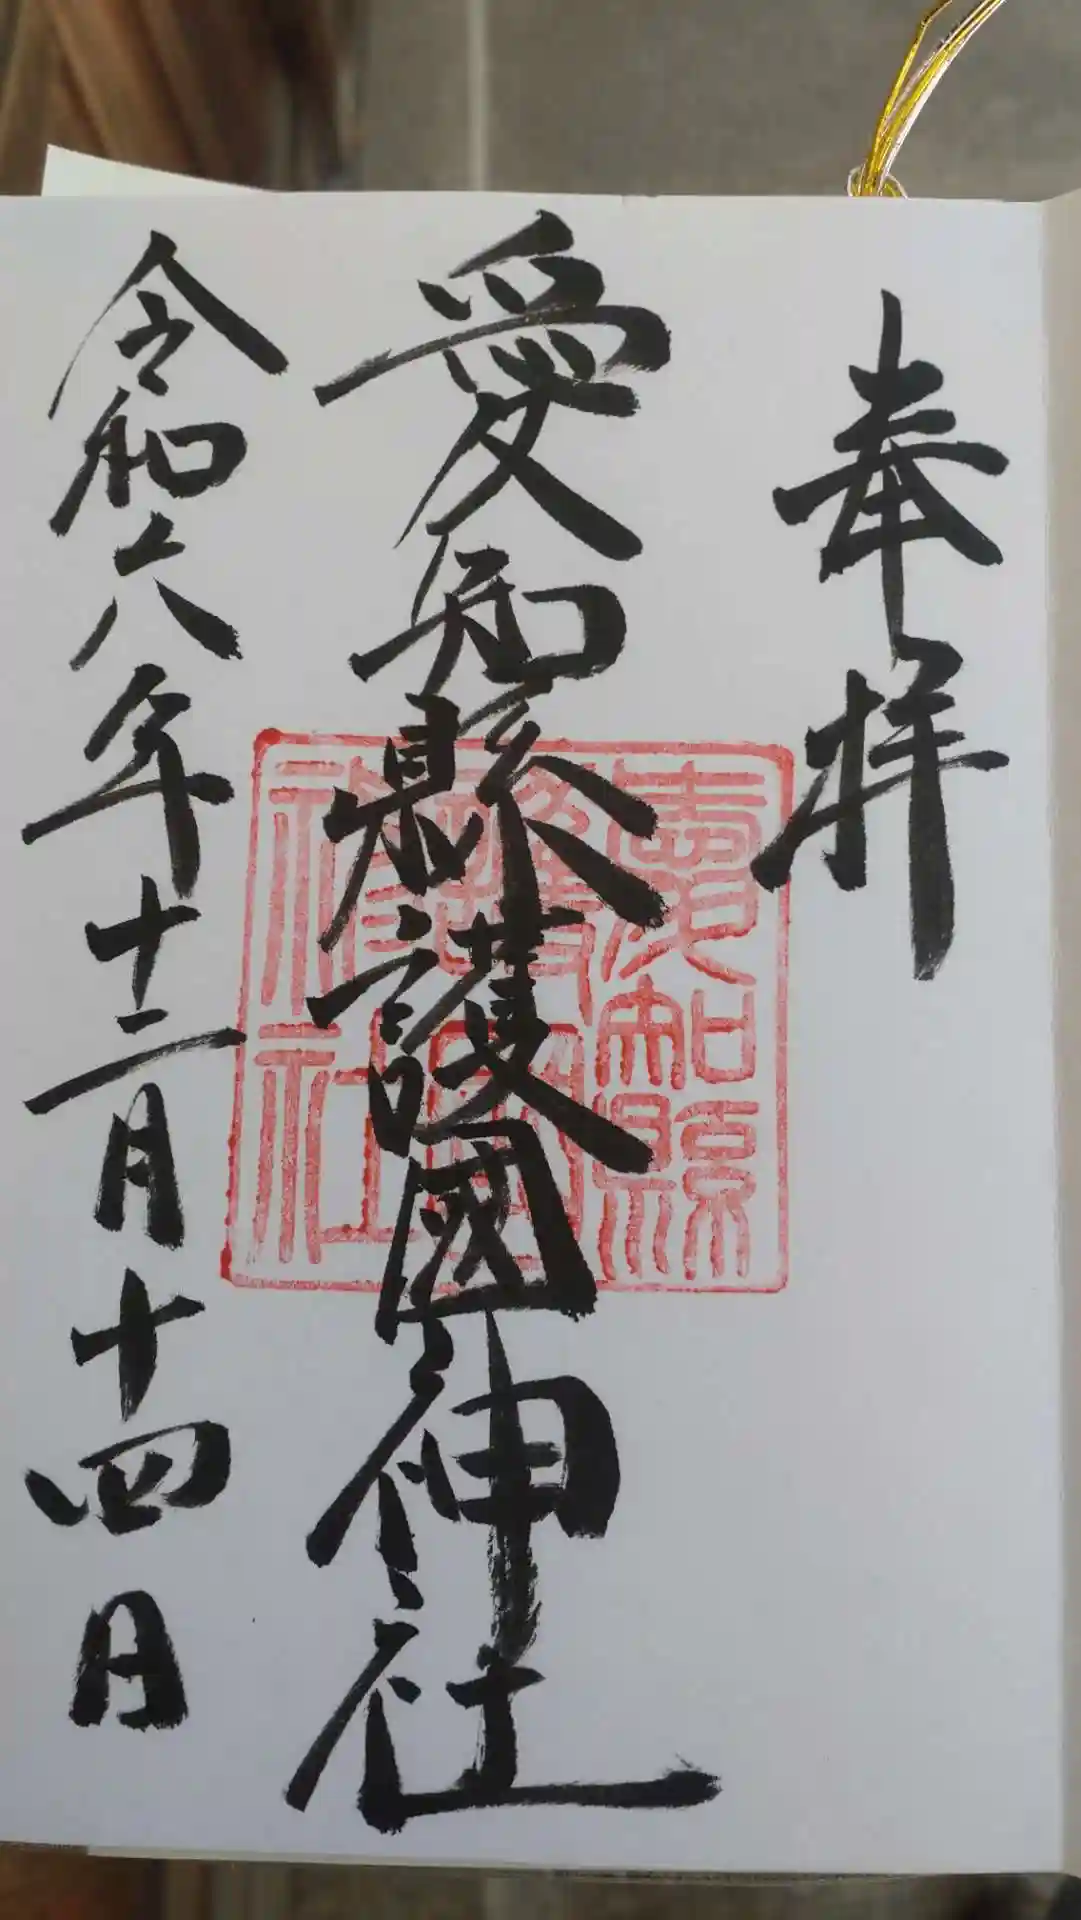 奉拝
愛知縣護國神社
愛知縣
護國
神社
令和六年十二月十四日